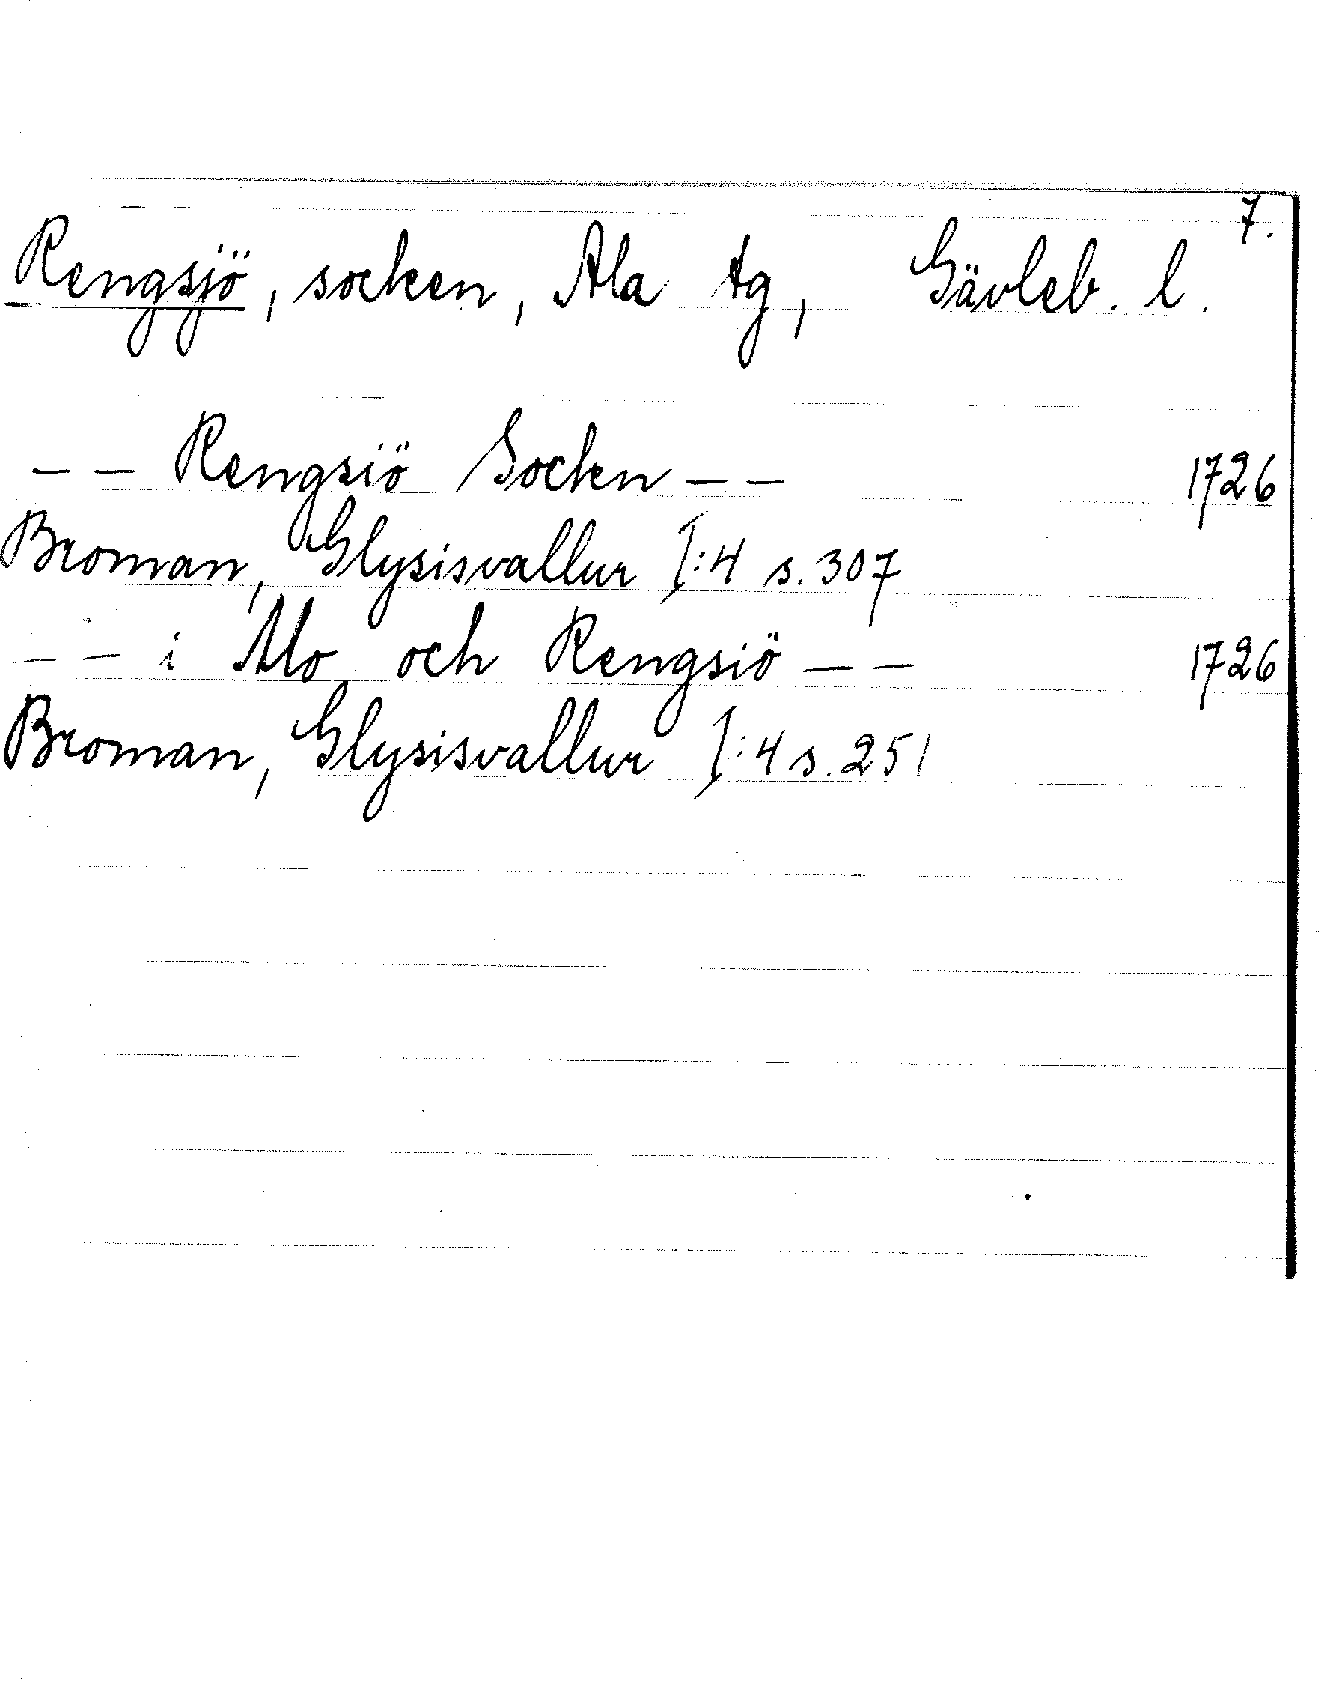 7.
Rengsjö, socken, Ala tg, Gävleb. l.
– – Rengsiö Socken – – 1726
Broman, Glysisvallur I:4 s. 307
– – i Mo och Rengsiö – – 1726
Broman, Glysisvallur I:4 s. 251